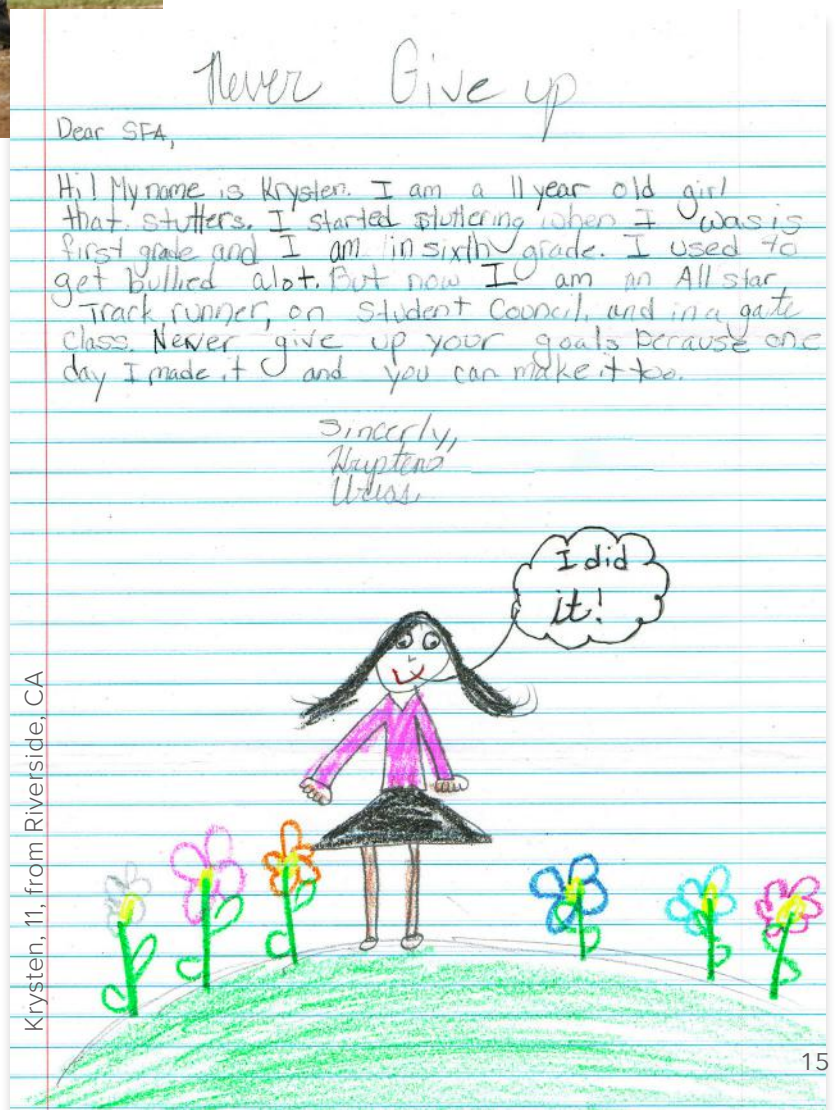 Never Give up
Dear SFA,
Hi! My name is Krysten. I am a 11 year old girl
that stutters. I started stuttering when I was is
first grade and I am in sixth grade. I used to
get bullied alot. But now I am an All star
Track runner, on Student Council, and in a gate
class. Never give up your goals because one
day I made it and you can make it too.
Sincerly,
I did
it!
Krysten, 11, from Riverside, CA
15